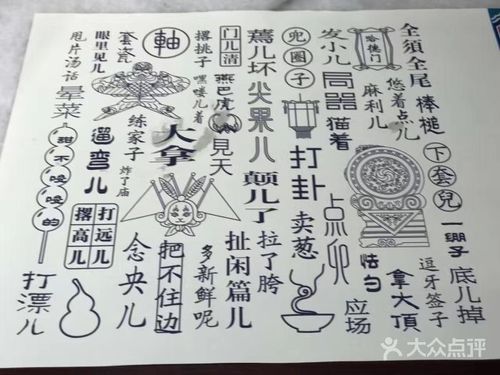 全須全尾
棒槌
悠着点儿
哈德门
麻利儿
下套兒
一绷子
底儿掉
逗牙签子
拿大頂
发小儿
局器
猫着
点卯
怯勺
应场
兜圈子
打卦
卖葱
蔫儿坏
尖果儿
颠儿了
拉了胯
扯闲篇儿
门儿清
燕巴虎
見天
撂挑子
嘿喽儿着
大拿
多新鲜呢
把不住边
軸
套瓷
练家子
炸了庙
念央儿
眼里见儿
甩片汤话
暈菜
遛彎儿
甜不唆唆的
打远儿
撂高儿
打漂儿
大众点评